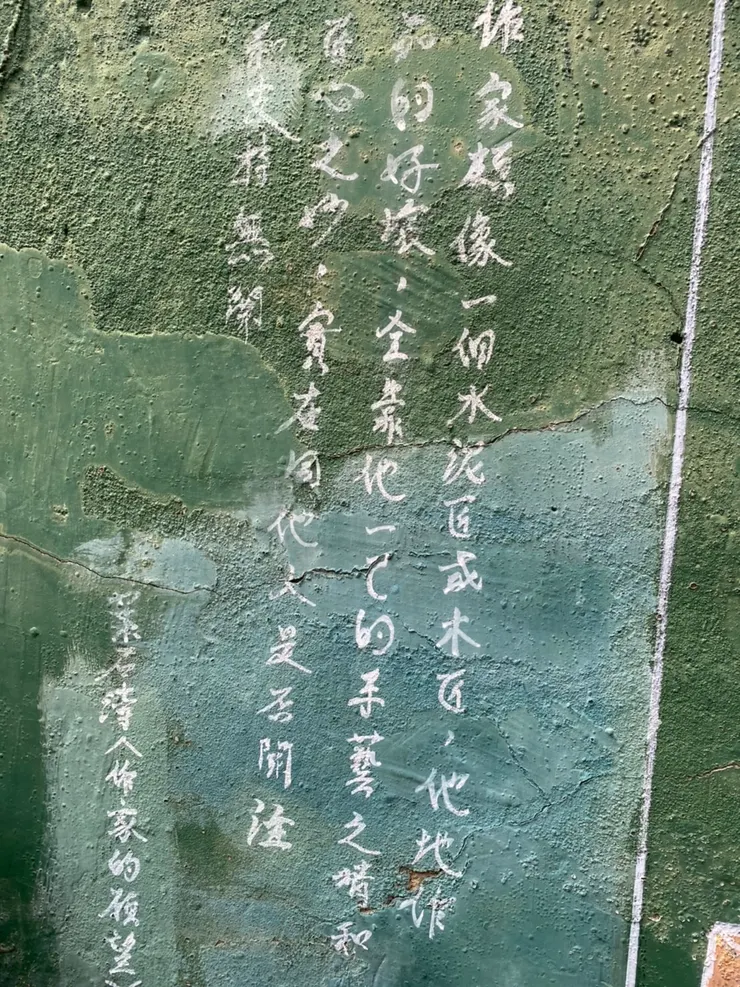 作家想像一個水泥匠或木匠，他地作
品的好壞，全靠他一己的手藝之精和
匠心之妙，實在同他人是否關注
和支持無關
葉石濤〈作家的願望〉